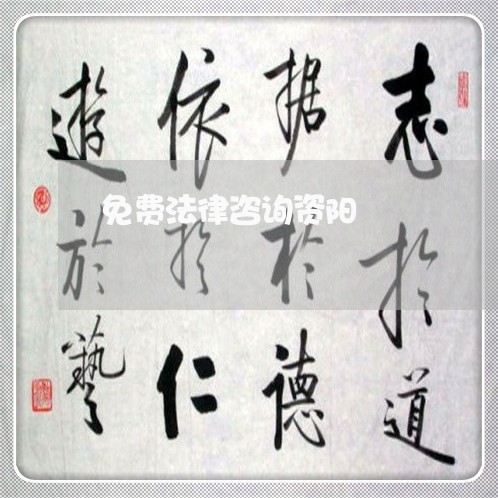 志扵道
据於德
依扵仁
遊於藝
免费法律咨询资阳